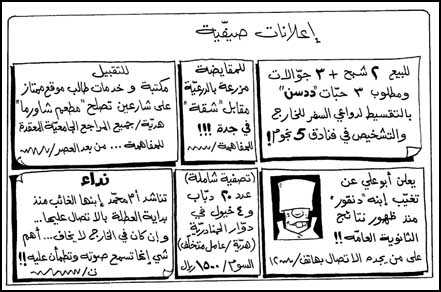 إعلانات صيفيّة
للبيع ٢ شبح + ٣ جوّالات
ومطلوب ٣ حبّات "ددسن"
بالتقسيط لدواعي السفر للخارج
والتشخيص في فنادق 5 نجوم!
للمقايضة
مزرعة بالدرعيّة
مقابل "شقة"
في جدة !!!
للمفاهمة/
للتقبيل
مكتبة و خدمات طالب موقع ممتاز
على شارعين تصلح "مطعم شاورما"
هديّة/ جميع المراجع الجامعيّة المعقدة
للمفاهمة ... من بعد العصر/
يعلن أبو علي عن
تغيّب إبنه "دنقور"
منذ ظهور نتائج
الثانوية العامّه !!
على من يجده الاتصال بهاتف/
(تصفية شاملة)
عدد ٢٠ دبّاب
و ٤ خيول في
دوّار الجنادريّة
(هديّة/عامل متخلّف)
السوم/ ١٥٠٠ ريال
نداء
تناشد أم محمّد إبنها الغائب منذ
بداية العطلة بالاتصال عليها...
وإن كان في الخارج لا يخاف... أهم
شي إنها تسمع صوته وتطمأن عليه !!
ت/